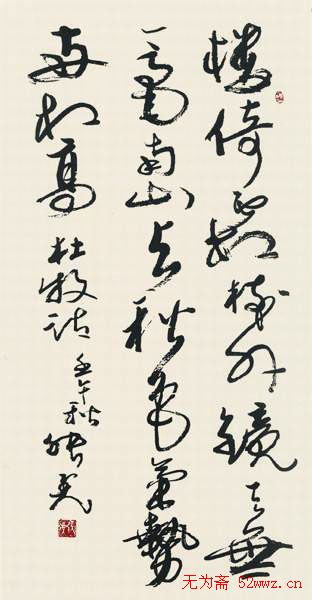 樓倚霜樹外鏡天無
一毫南山与秋色氣勢
兩相高
杜牧诗 壬午秋
无为斋 52wwz.cn